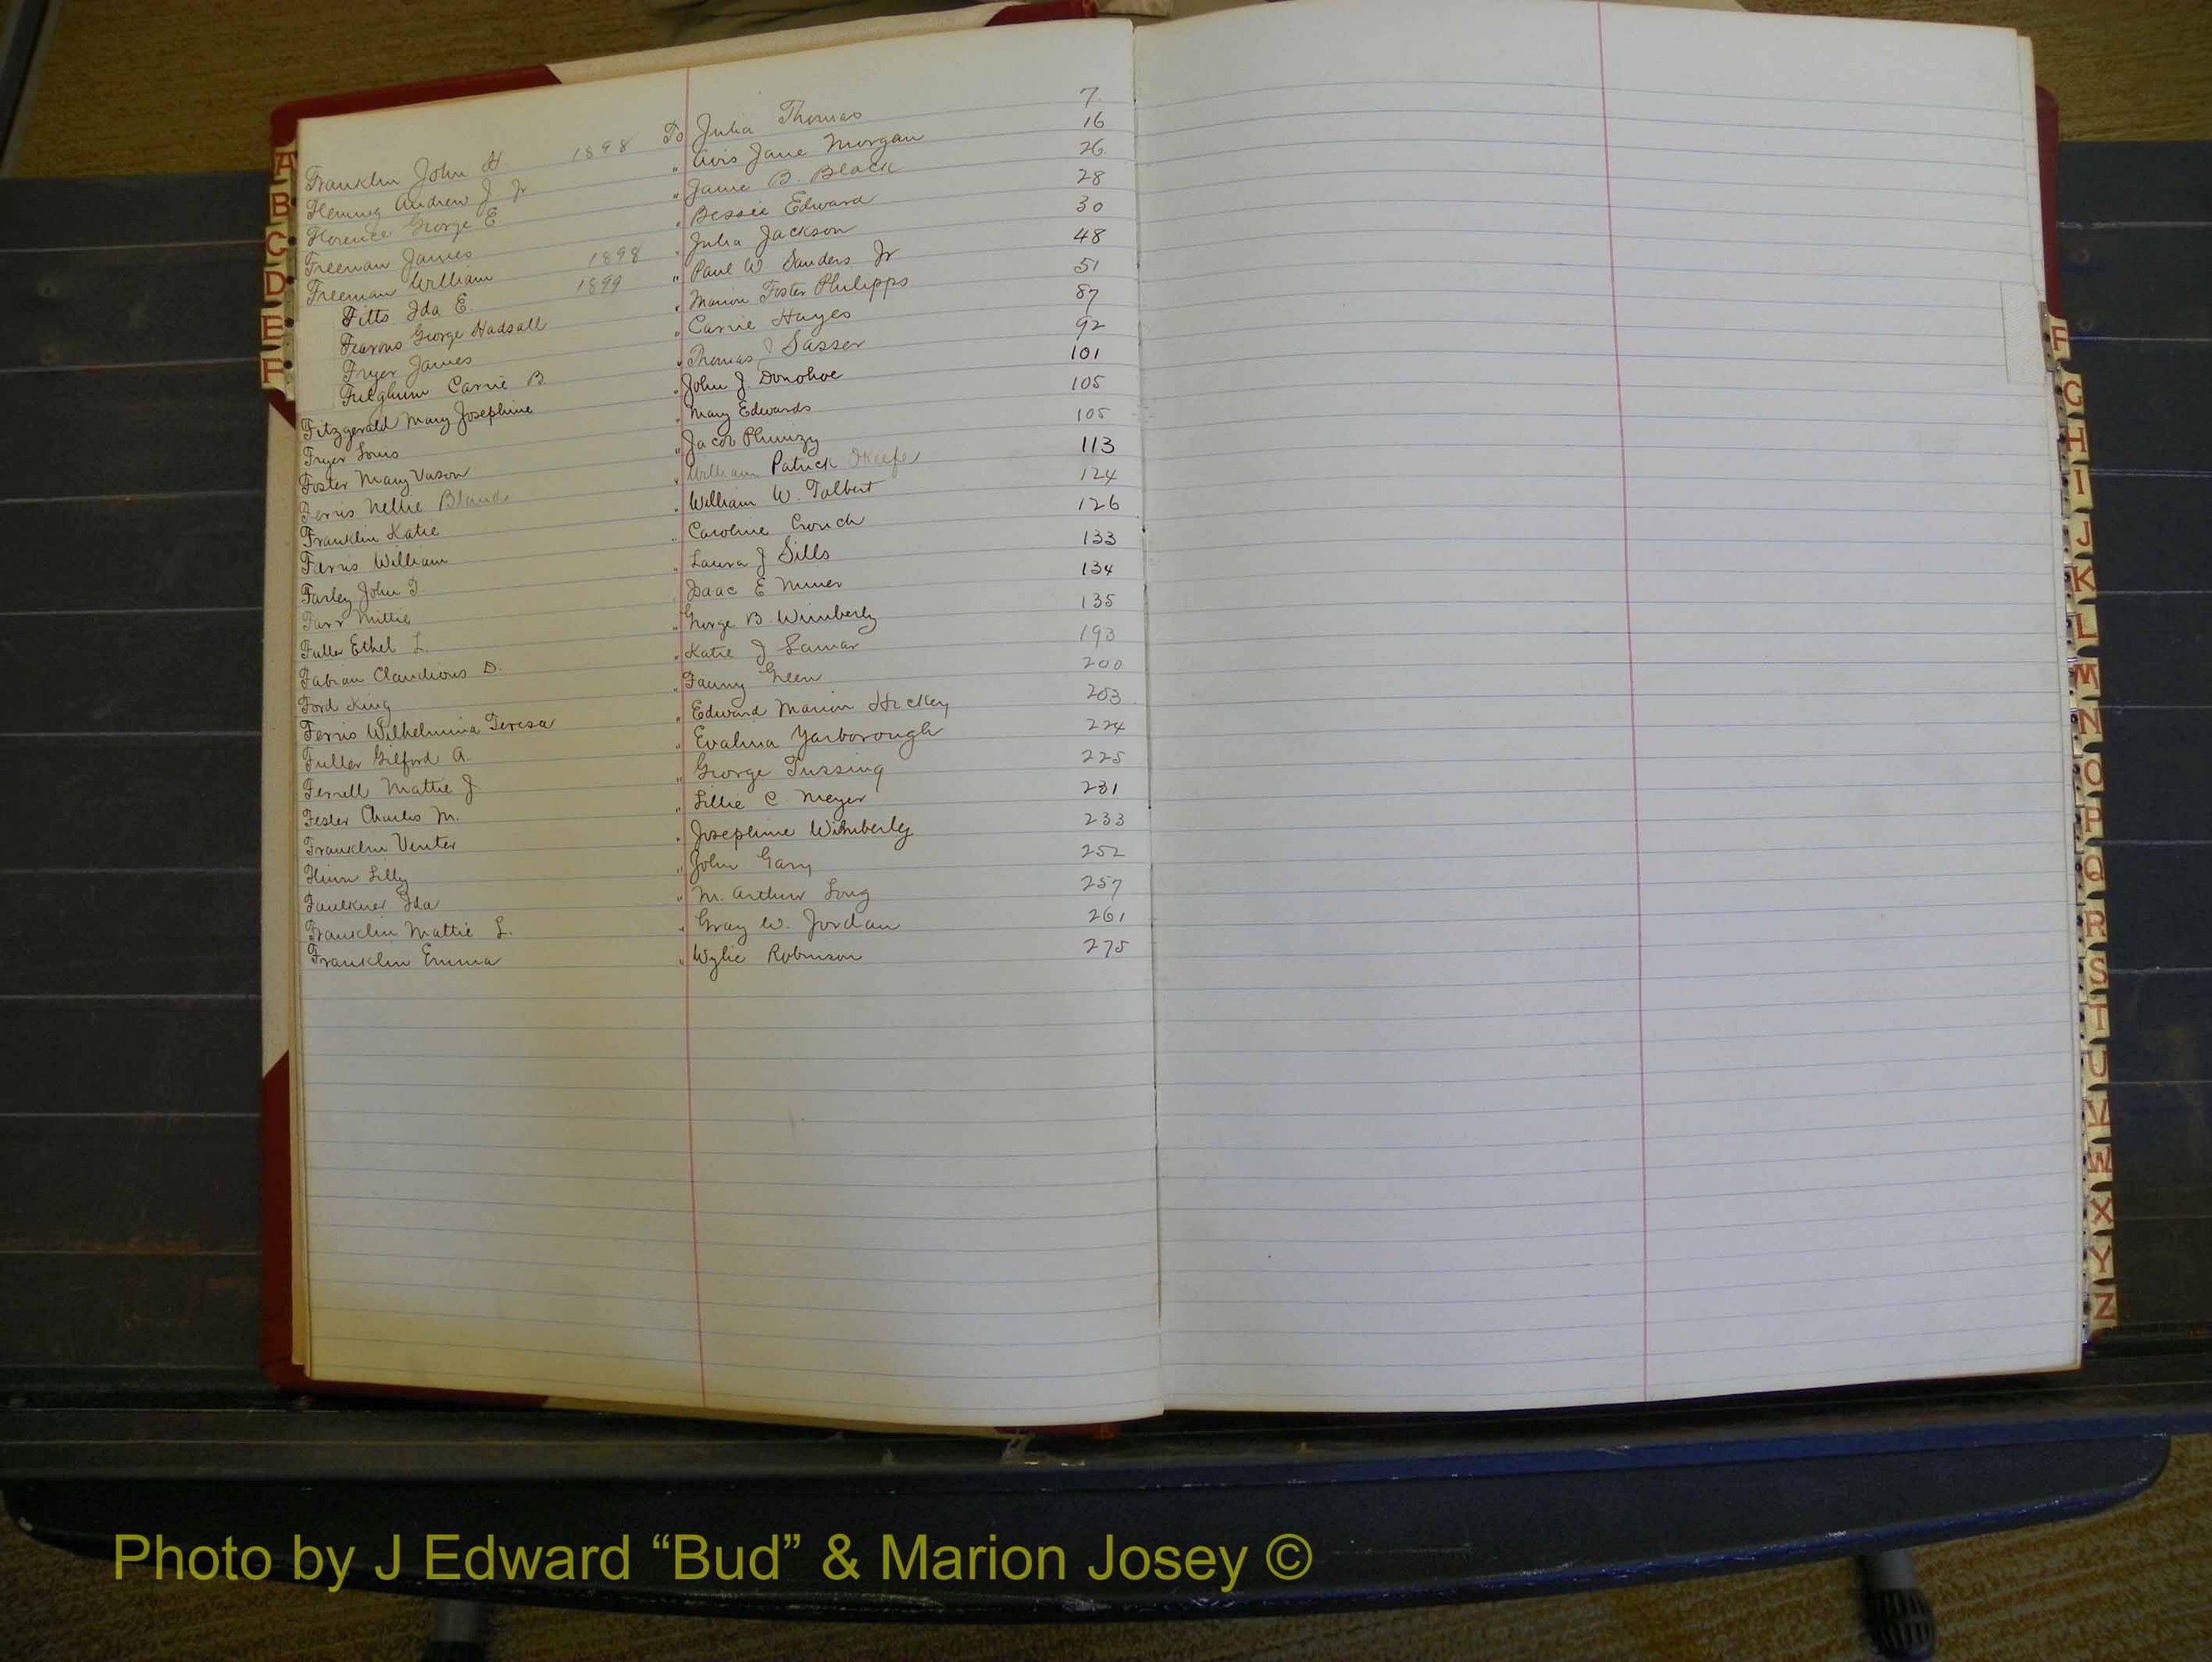 Franklin John H. 1898 To Julia Thomas 7
Fleming Andrew J Jr " Avis Jane Morgan 16
Florence George E " Janie B. Black 26
Freeman James " Bessie Edward 28
Freeman William 1898 " Julia Jackson 30
Fitts Ida E. 1899 " Paul W Sanders Jr 48
Fearons George Hadsall " Marion Foster Philipps 51
Fryer James " Carrie Hayes 87
Fulghum Carrie B. " Thomas J Sasser 92
Fitzgerald Mary Josephine " John J. Donohoe 101
Fryer Louis " Mary Edwards 105
Foster Mary Vason " Jacob Phinizy 105
Ferris Nellie " William Patrick OKeefe 113
Franklin Katie " William W. Talbert 124
Farris William " Caroline Crouch 126
Farley John T. " Laura J Sills 133
Farr Mittie " Isaac E Miner 134
Fuller Ethel L. " George B. Wimberly 135
Fabian Claudious D. " Katie J Lamar 193
Ford King " Fanny Green 200
Ferris Wilhelmina Teresa " Edward Marion Hickey 203
Fuller Gilford A. " Evalina Yarborough 224
Ferrell Mattie J " George Tussing 225
Fester Charles M. " Lillie C. Meyer 231
Franklin Venter " Josephine Wimberly 233
Flinn Lilly " John Gary 252
Faulkner Ida " M. Arthur Long 257
Franklin Mattie L. " Gray W. Jordan 261
Franklin Emma " Wylie Robinson 275
A
B
C
D
E
F
F
G
H
I
J
K
L
M
N
O
P
Q
R
S
T
U
V
W
X
Y
Z
Photo by J Edward “Bud” & Marion Josey ©